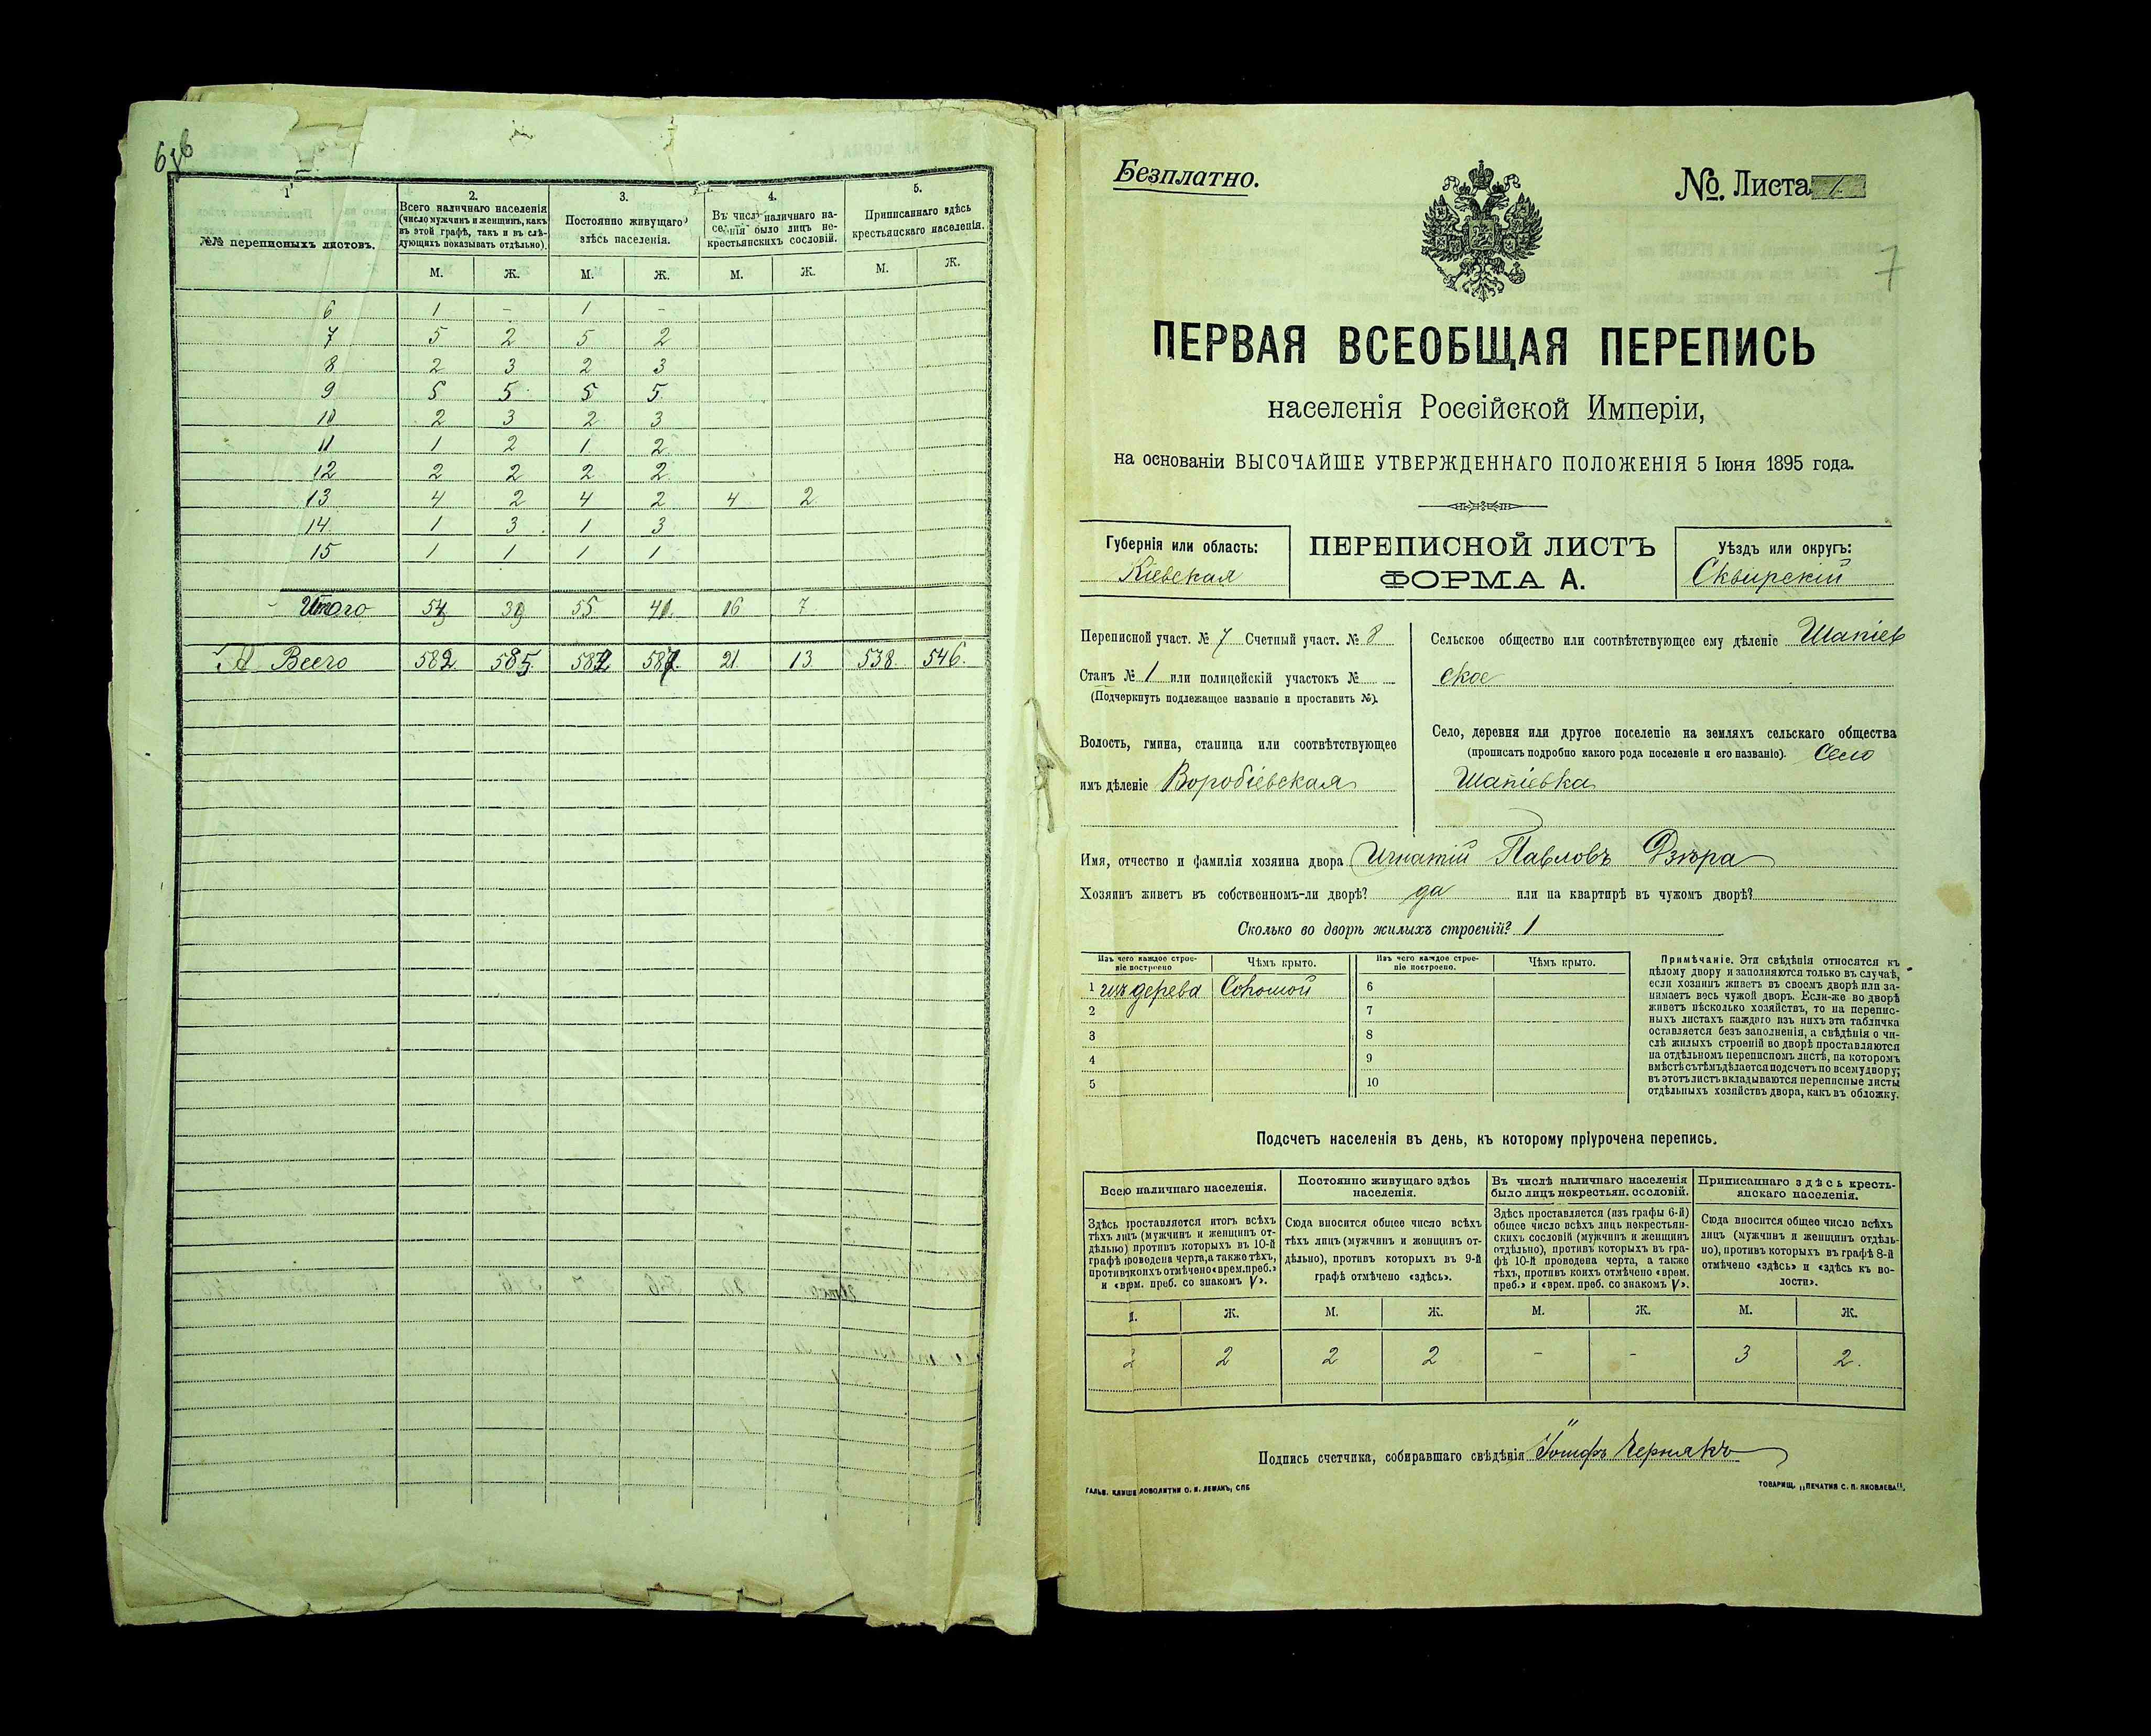 1
2.
3.
4.
5.
№№ переписныхъ листовъ.
Всего наличнаго населенія
(число мужчинъ и женщинъ, какъ
въ этой графѣ, такъ и въ слѣ-
дующихъ показывать отдѣльно).
Постоянно живущаго
здѣсь населенія.
Въ числѣ наличнаго на-
селенія было лицъ не-
крестьянскихъ сословій.
Приписаннаго здѣсь
крестьянскаго населенія.
М. Ж. М. Ж. М. Ж. М. Ж.
6 1 - 1 -
7 5 2 5 2
8 2 3 2 3
9 5 5 5 5
10 2 3 2 3
11 1 2 1 2
12 2 2 2 2
13 4 2 4 2 4 2
14 1 3 1 3
15 1 1 1 1
Итого 55 41 16 7
Всего 582 585 21 13 538 546
Безплатно.
№ Листа 1
7
ПЕРВАЯ ВСЕОБЩАЯ ПЕРЕПИСЬ
населенія Россійской Имперіи,
на основаніи ВЫСОЧАЙШЕ УТВЕРЖДЕННАГО ПОЛОЖЕНІЯ 5 Іюня 1895 года.
Губернія или область:
Кіевская
ПЕРЕПИСНОЙ ЛИСТЪ
ФОРМА А.
Уѣздъ или округъ:
Сквирскій
Переписной участ. № 7 Счетный участ. № 8
Станъ № 1 или полицейскій участокъ №
(Подчеркнуть подлежащее названіе и проставить №).
Волость, гмина, станица или соотвѣтствующее
имъ дѣленіе Воробіевская
Сельское общество или соотвѣтствующее ему дѣленіе Шапіев
ское
Село, деревня или другое поселеніе на земляхъ сельскаго общества
(прописать подробно какого рода поселеніе и его названіе). Село
Шапіевка
Имя, отчество и фамилія хозяина двора Игнатій Павловъ Дзюра
Хозяинъ живетъ въ собственномъ-ли дворѣ? да или на квартирѣ въ чужомъ дворѣ?
Сколько во дворѣ жилыхъ строеній? 1
Изъ чего каждое строе-
ніе построено
Чѣмъ крыто.
Изъ чего каждое строе-
ніе построено.
Чѣмъ крыто.
1 изъ дерева Соломой 6
2 7
3 8
4 9
5 10
Примѣчаніе. Эти свѣдѣнія относятся къ
цѣлому двору и заполняются только въ случаѣ,
если хозяинъ живетъ въ своемъ дворѣ или за-
нимаетъ весь чужой дворъ. Если-же во дворѣ
живетъ нѣсколько хозяйствъ, то на перепис-
ныхъ листахъ каждаго изъ нихъ эта табличка
оставляется безъ заполненія, а свѣдѣнія о чи-
слѣ жилыхъ строеній во дворѣ проставляются
на отдѣльномъ переписномъ листѣ, на которомъ
вмѣстѣ съ тѣмъ дѣлается подсчетъ по всему двору;
въ этотъ листъ вкладываются переписные листы
отдѣльныхъ хозяйствъ двора, какъ въ обложку.
Подсчетъ населенія въ день, къ которому пріурочена перепись.
Всего наличнаго населенія.
Здѣсь проставляется итогъ всѣхъ
тѣхъ лицъ (мужчинъ и женщинъ от-
дѣльно) противъ которыхъ въ 10-й
графѣ проведена черта, а также тѣхъ,
противъ коихъ отмѣчено «врем. преб.»
и «врем. преб. со знакомъ V».
Постоянно живущаго здѣсь
населенія.
Сюда вносится общее число всѣхъ
тѣхъ лицъ (мужчинъ и женщинъ от-
дѣльно), противъ которыхъ въ 9-й
графѣ отмѣчено «здѣсь».
Въ числѣ наличнаго населенія
было лицъ некрестьян. сословій.
Здѣсь проставляется (изъ графы 6-й)
общее число всѣхъ лицъ некрестьян-
скихъ сословій (мужчинъ и женщинъ
отдѣльно), противъ которыхъ въ гра-
фѣ 10-й проведена черта, а также
тѣхъ, противъ коихъ отмѣчено «врем.
преб.» и «врем. преб. со знакомъ V».
Приписаннаго здѣсь кресть-
янскаго населенія.
Сюда вносится общее число всѣхъ
лицъ (мужчинъ и женщинъ отдѣль-
но), противъ которыхъ въ графѣ 8-й
отмѣчено «здѣсь» и «здѣсь къ во-
лости».
М. Ж. М. Ж. М. Ж. М. Ж.
2 2 2 2 - - 3 2.
Подпись счетчика, собиравшаго свѣдѣнія Іосифъ Чернякъ
ТОВАРИЩ. „ПЕЧАТНЯ С. П. ЯКОВЛЕВА".